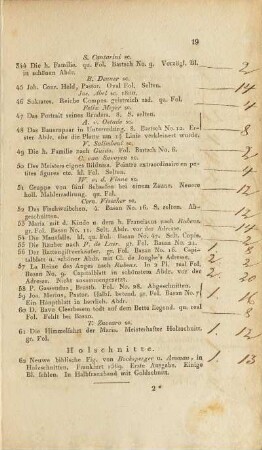 19
S. Cantarini sc.
344 Die h. Familie. qu. Fol. Bartsch No. 9. Verzügl. fil.
in schönen Abdr.
B. Denner sc.
45 Joh. Conr. Held, Pastor. Oval Fol. Selten.
46 Sokrates. Reiche Compos. geistreich rad. qu. Fol.
Felix Meyer sc.
47 Das Portrait seines Bruders. 8. S. selten.
A. v. Ostade sc.
48 Das Bauernpaar in Unterredung. 8. Bartsch No. 12. Er-
ster Abdr. ehe die Platte um 15 Linie verkleinert wurde.
F. Salimbeni sc.
49 Die h. Familie nach Guido. Fol. Bartsch 6.
50 Des Meisters eignes Bildniss. Peintre extraordinaire en
petites figures etc. kl. Fol. Selten.
51 Gruppe von fünf Schaafen bei einem Zaun.
Corn. Visscher sc.
52 Das Fischweibchen. 4. Basan No. 16. S. selten. Ab-
geschnitten.
53 Maria mit d. Kinde u dem h. Franciscus nach Rubens.
gr. Fol. Basan No. 11. Selt. Abdr. vor d. Adresse.
54 Die Mausfalle. kl. qu. Fol. Basan No. 47. Selt. Copie.
55 Die Räuber nach P. de Laar. gr. Fol. Basan No. 21.
56 Der Rattengiftverkäufer. gr. Fol. Basan No. 43. Capi-
talblatt u. schöner Abdr. mit Cl. de Jonghe's Adresse.
57 La Reine des Anges nach Rubens. In 2 Pl. real Fol.
Basan No. 9. Capitalblatt in schönstem Abdr. vor der
Adresse. Nicht zusammengesetzt.
58 P. Gassendus, Brustb. Fol. No. 28. Abgeschnitten.
59 Joh. Merius, Pastor. Halbf. betend. gr. Fol. Basan No. 7.
Ein Hauptblatt in herrlich. Abdr.
Fol. Fehlt bei Basan.
61 Die Himmelfahrt der Maria. Meisterhafter Holzschnitt.
gr. Fol.
Holschnitte.
62 Neuwe biblische Fig. von Bocksperger u. Amman, in
Holzschnitten. Frankfurt 1569. Erste Ausgabe. Einige
Bl. fehlen. In Halbfranzband mit Goldschnitt.
2 *